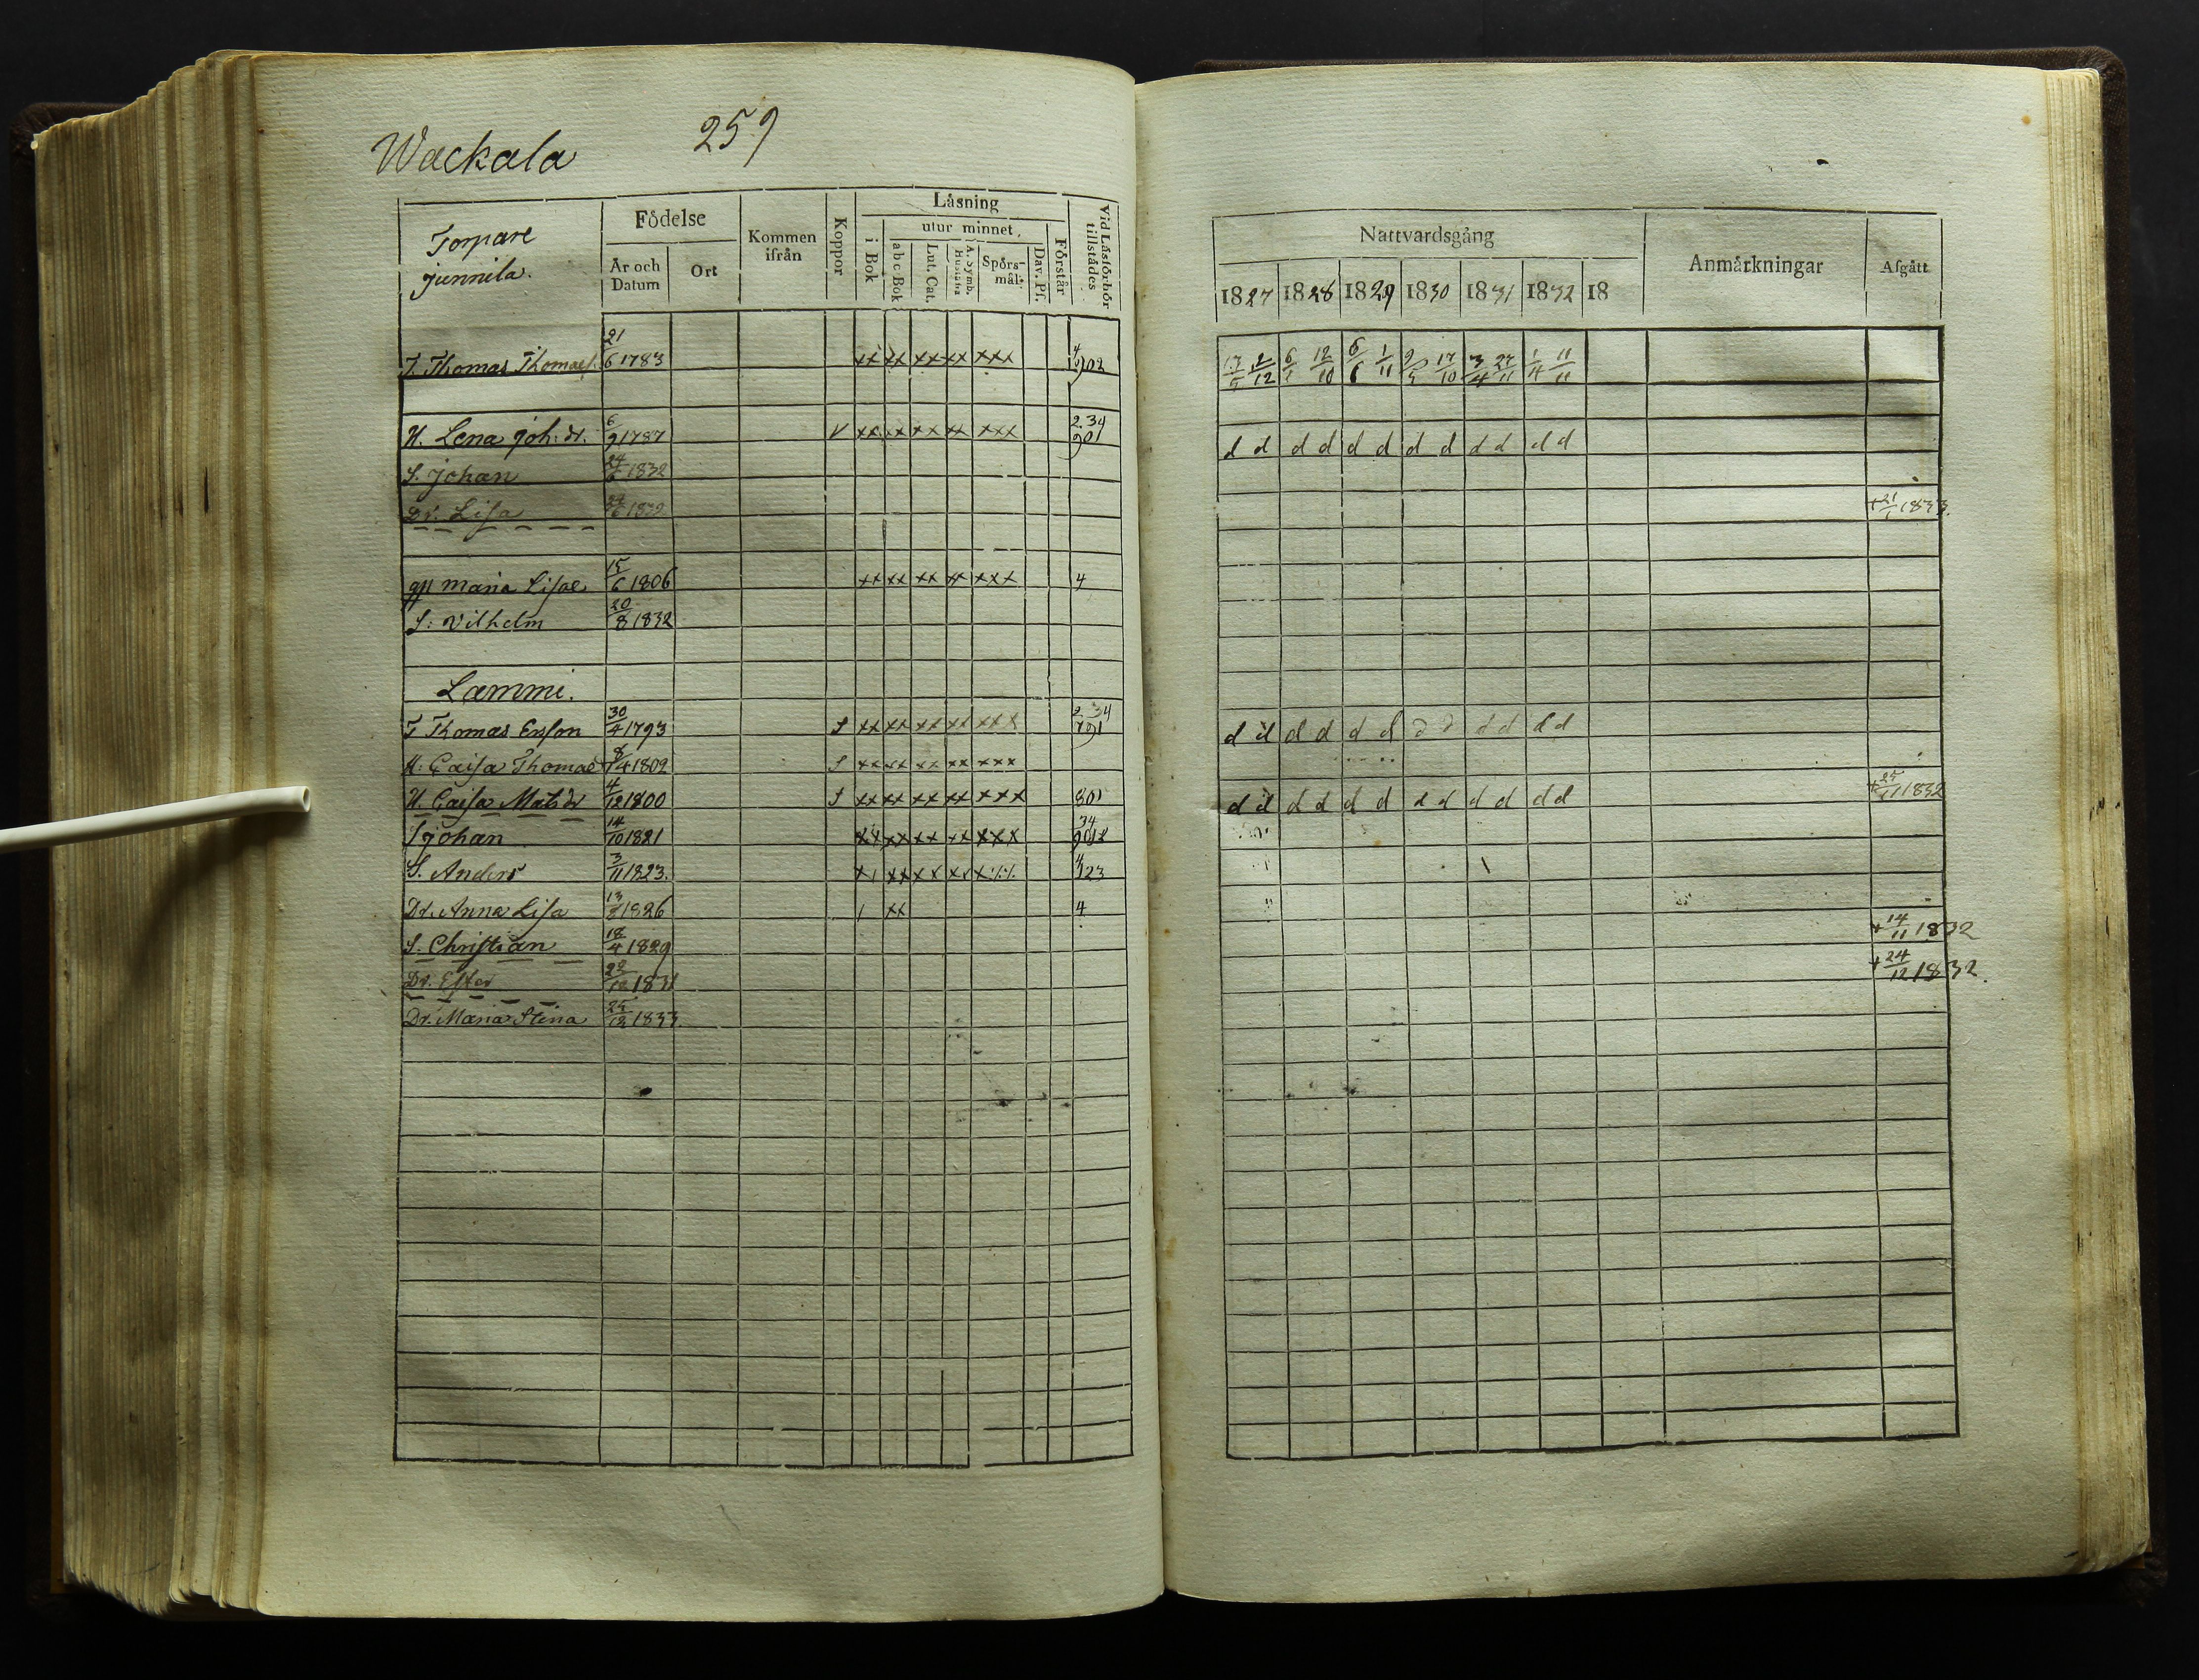 Wackala 259
Torpare
Junnila.
Födelse
År och Datum
Ort
Kommen ifrån
Koppor
Läsning
i Bok
utur minnet,
a b c Bok
Lut. Cat.
A. Symb. Hustafla
Spörs-mål.
Dav. Ps.
Förstår
Vid Läsförhör tillstädes
T. Thomas Thomas. 21/6 1783 xx xx xx xx xxx
H. Lena Joh: dr. 6/9 1787 V xx xx xx xx xxx 2 34 901
S. Johan 24/6 1832
Dr. Lisa 24/6 1832
gp Maria Lisae 15/6 1806 xx xx xx xx xxx 4
S: Vilhelm 20/8 1832
Lammi.
T Thomas Ersson 30/4 1793 S xx xx xx xx xxx 2 34 791
H: Caisa Thomasd 8/4 1802 S xx xx xx xx xxx
H. Caisa Mats dr 4/12 1800 S xx xx xx xx xxx 801
S Johan 14/10 1821 xx xx xx xx xxx 34
S. Anders 3/11 1823. 4 123
Dr. Anna Lisa 13/8 1826 1 xx 4
S. Christian 18/4 1829
Dr. Ester 1831
Dr. Maria Stina 25/12 1833
Nattvardsgång
Anmärkningar
Afgått
1827 1828 1829 1830 1831 1832 18
2/12 12/10 6/6 1/11 17/10 3/4 27/11 1/4 11/11
d d d d d d d d d d d d
+ 21/1 1833.
d d d d d d d d d d d d
d d d d d d d d d d d d + 25/11 1832
+ 14/11 1832
+ 24/12 1832.